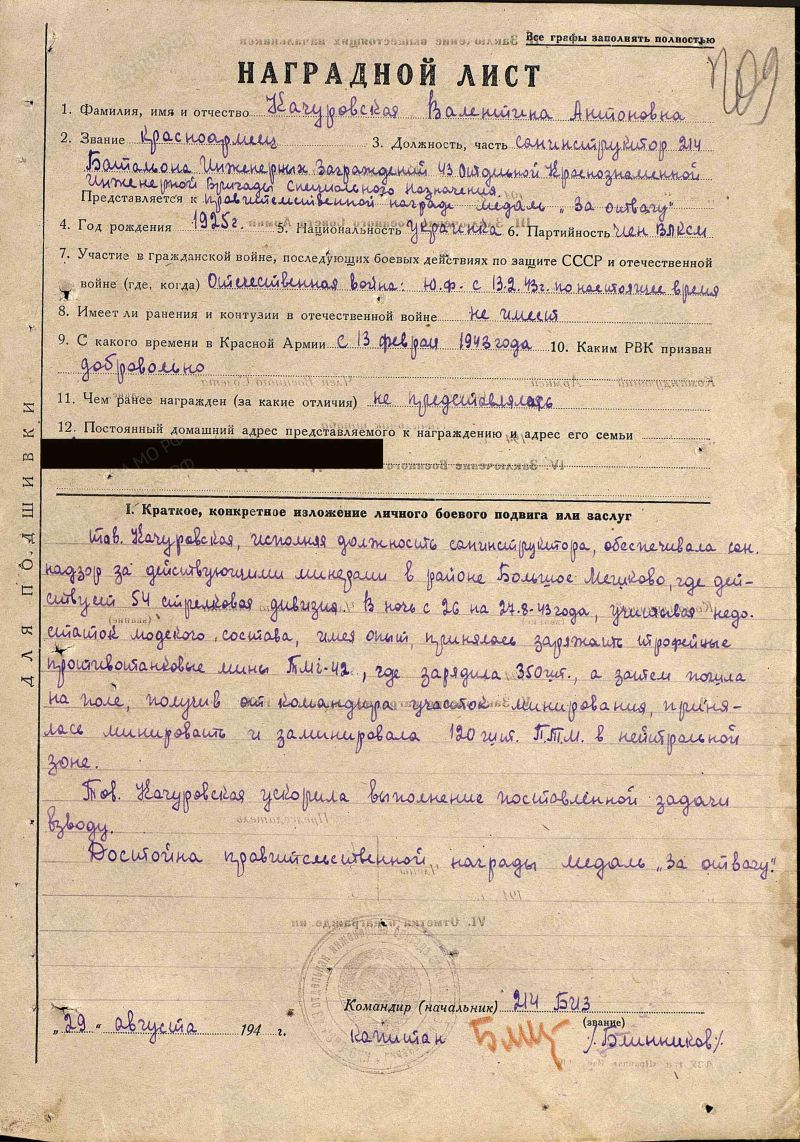 Все графы заполнять полностью
НАГРАДНОЙ ЛИСТ
209
1. Фамилия, имя и отчество Качуровская Валентина Антоновна
2. Звание красноармеец 3. Должность, часть санинструктор 214
Батальона Инженерных Заграждений 43 Отдельной Краснознаменной
Инженерной Бригады специального назначения.
Представляется к правительственной награде медаль „За отвагу"
4. Год рождения 1925г. 5. Национальность украинка 6. Партийность член ВЛКСМ
7. Участие в гражданской войне, последующих боевых действиях по защите СССР и отечественной
войне (где, когда) Отечественная война: Ю.Ф. с 13.2.43г. по настоящее время
8. Имеет ли ранения и контузии в отечественной войне не имеет
9. С какого времени в Красной Армии с 13 февраля 1943 года 10. Каким РВК призван
добровольно
11. Чем ранее награжден (за какие отличия) не представлялась
12. Постоянный домашний адрес представляемого к награждению и адрес его семьи
I. Краткое, конкретное изложение личного боевого подвига или заслуг
Тов. Качуровская, исполняя должность санинструктора, обеспечивала сан.
надзор за действующими минерами в районе Большое Мешково, где дей-
ствует 54 стрелковая дивизия. В ночь с 26 на 27.8.43 года, учитывая недо-
статок людского состава, имея опыт, принялась заряжать трофейные
противотанковые мины ТМi-42, где зарядила 350 шт., а затем пошла
на поле, получив от командира участок минирования, приня-
лась минировать и заминировала 120 шт. П.Т.М. в нейтральной
зоне.
Тов. Качуровская ускорила выполнение поставленной задачи
взводу.
Достойна правительственной награды медаль „За отвагу".
Командир (начальник) 214 БИЗ
(звание)
„29" августа 194 г. капитан /Блинников/
ДЛЯ ПОДШИВКИ